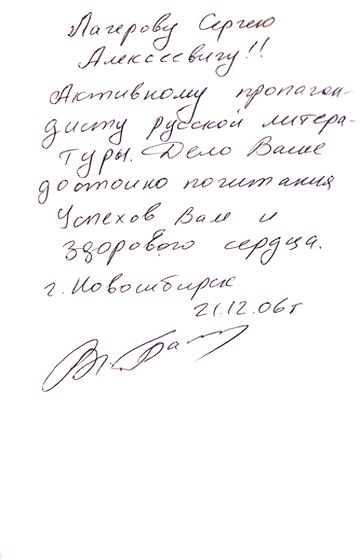 Лагерову Сергею
Алексеевичу!!
Активному пропаган-
дисту русской литера-
туры. Дело Ваше
достойно почитания
Успехов Вам и
здорового сердца.
г. Новосибирск
21.12.06г